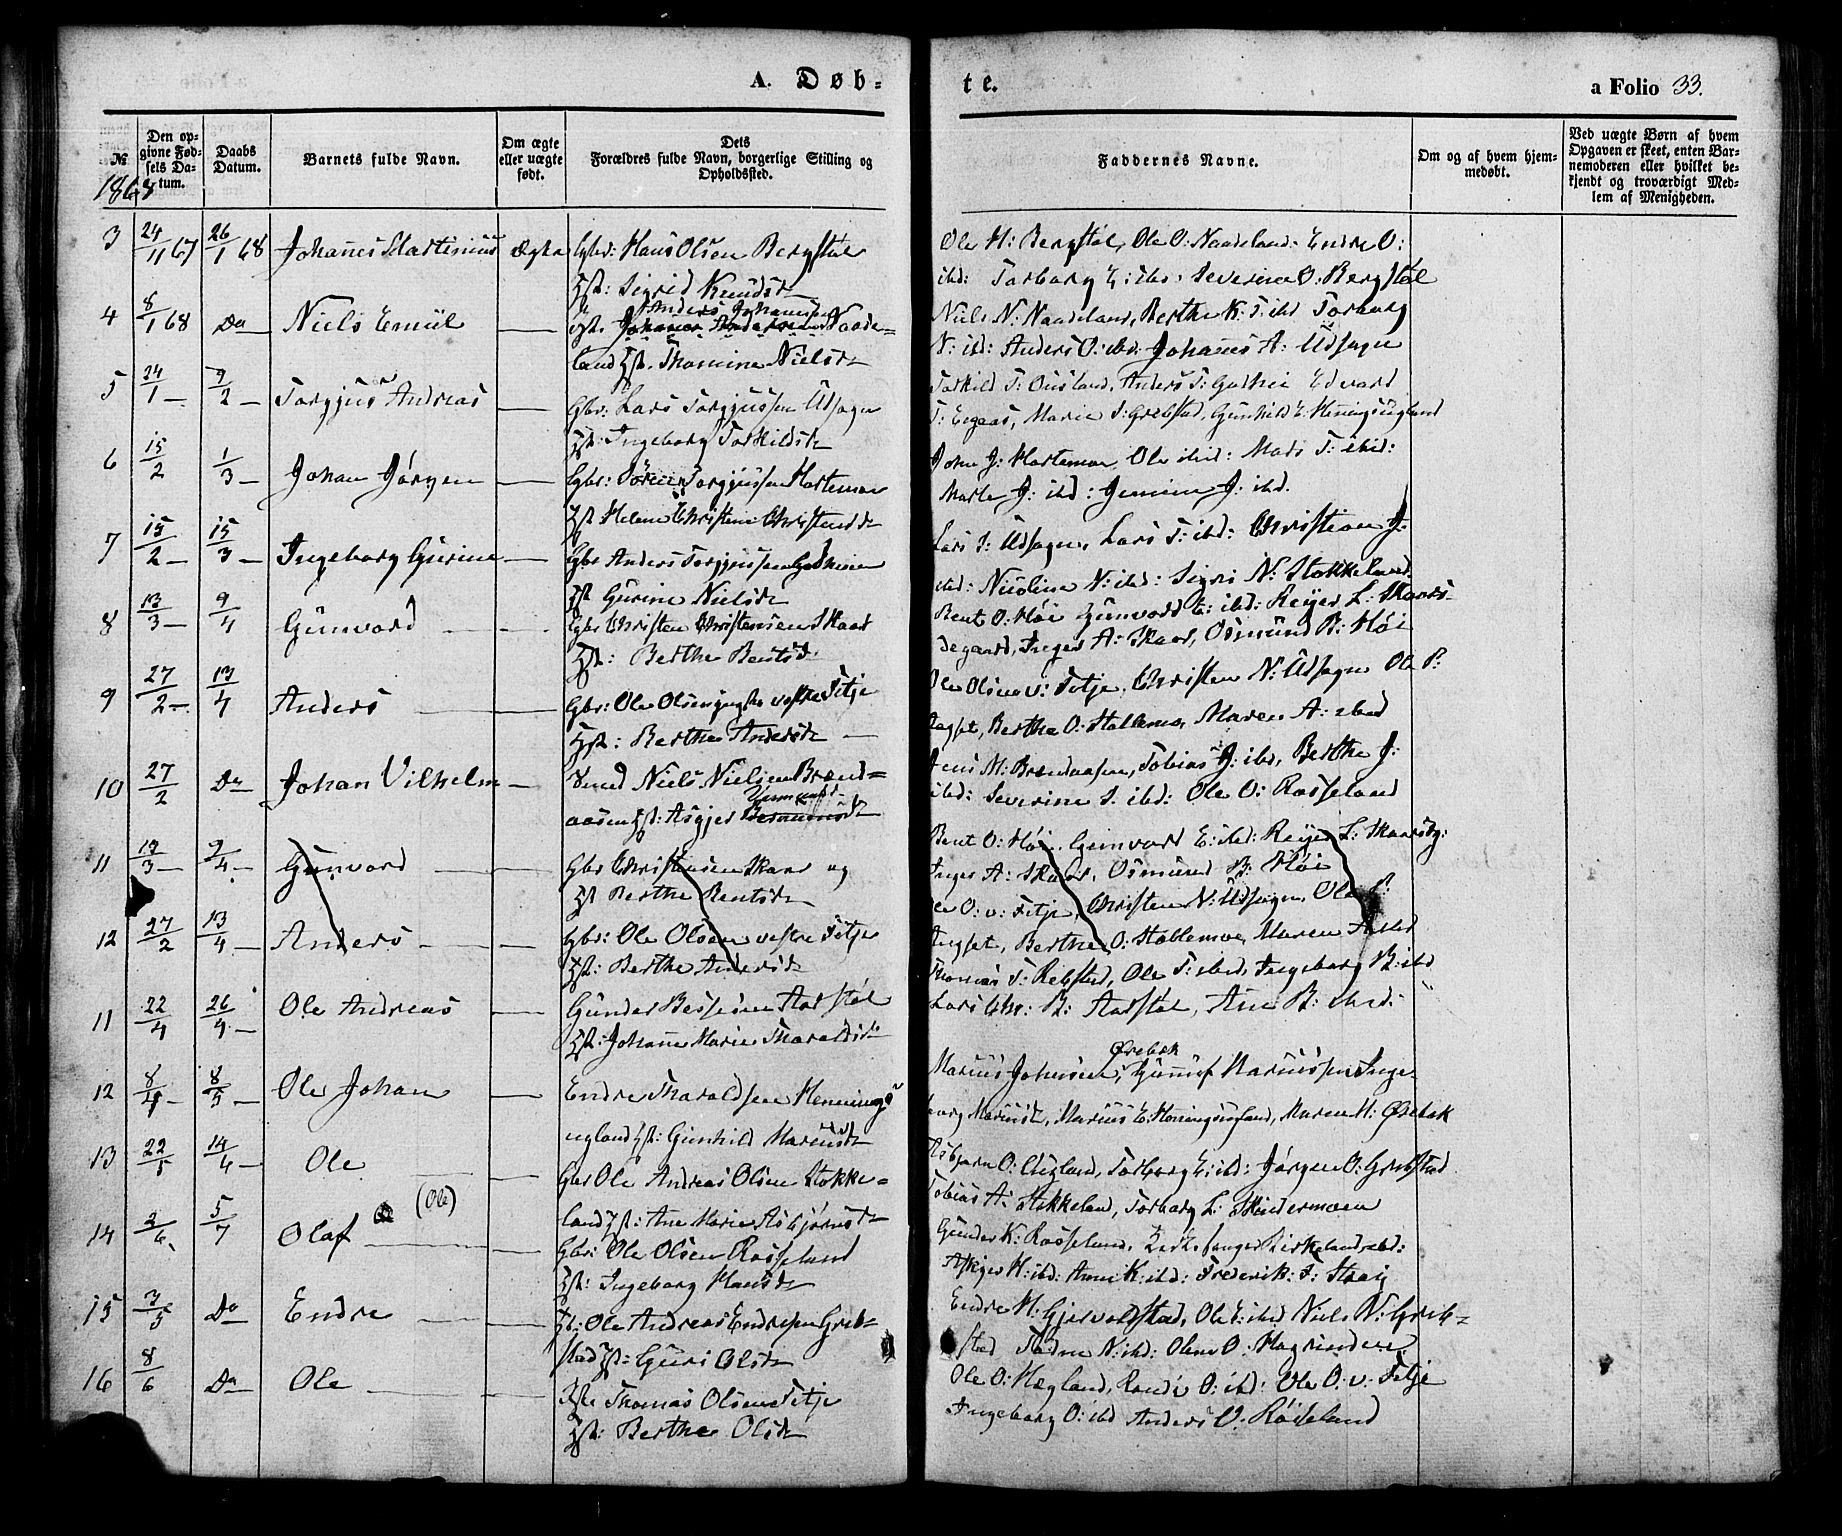 A. Døb-
te.
a Folio 33.
№
Den op-
givne Fød-
sels Da-
tum.
Daabs
Datum.
Barnets fulde Navn.
Om ægte
eller uægte
født.
Dets
Forældres fulde Navn, borgerlige Stilling og
Opholdssted.
Faddernes Navne.
Om og af hvem hjem-
medøbt.
Ved uægte Børn af hvem
Opgaven er skeet, enten Bar-
nemoderen eller hvilket be-
kjendt og troværdigt Med-
lem af Menigheden.
1868
3 24/11 67 26/1 68 Johanes Martinius Ægte Gbr: Hans Olsen Bergstøl
Hst: Sigrid Knudsd
Ole H: Bergstøl, Ole O: Naadeland: Endre O:
ibd: Torborg E: ibd: Severine O: Bergstøl
4 8/1 68 Do Niels Emiil — Anders Johannesen
Johanes Andersen Naade-
land Hst. Thomine Nielsd
Niels N: Naadeland, Berthe K: T: ibd Torborg
N: ibd: Anders O: ibd: Johanes A: Udsogn
5 24/1 — 9/2 — Torgjus Andreas — Gbr: Lars Torgjussen Udsogn
Hst: Ingeborg Torkildsd
Torkild T: Ousland, Anders T: Edvard
T: Eegaas, Marie T: Grebstad, Gunhild E: Heningsugland
6 15/2 1/3 — Johan Jörgen — Gbr: Torgjussen Hortemoe
Hst Helene Christine Christensd
John J: Hortemoe, Ole ibid: Mads T: ibid:
Marte J: ibd: J: ibd.
7 15/2 — 15/3 — Ingeborg Gurine — Gbr Anders Torgjussen
Hst Gurine Nielsd
Lars T: Udsogn, Lars T: ibd: Christian J:
ibd: Nicoline N: ibd: Sigri N: Stokkeland
8 13/3 — 9/4 Gunvord — Gbr Christen Christensen Skaar
Hst: Berthe Bentsd
Bent O: Høi Gunvord E: ibd: Reijer L: Skaars-
degaard, Inger A: Skaar, Osmund B: Høi
9 27/2 — 13/4 Anders — Gbr: Ole Olsen vestre Fitje
Hst: Berthe Andersd —
Ole Olsen v: Fitje, Christen N: Udsogn Ole P:
Berthe O: Stallemo, Maren A: ibid
10 27/2 Do Johan Vilhelm — Niels Nielsen Brænd-
aasen Hst: Asgjer
Jens M: Brændaasen, Tobias J: ibd, Berthe J:
ibd: Severine S: ibd: Ole O: Rosseland
11 13/3 — 9/4 — Gunvord — Gbr Christensen Skaar og
Hst Berthe Bentsd
Bent O: Høi, Gunvord E: ibd: Reijer L: Skaarsdg:
Inger A: Skaar, Osmund B: Høi
12 27/2 13/4 — Anders — Gbr: Ole Olsen vestre Fitje
Hst: Berthe Andersd
O: v: Fitje, Christen N: Udsogn, Ole P:
Berthe O: Stallemoe, Maren A: ibd
11 22/4 26/4 — Ole Andreas — Gunder Aastøl
Hst: Johanne Marie Tharaldsd
Thomas T: Rebstad, Ole T: ibd, Ingeborg B: ibd
Lars Chr: B: Aastøl, Ane B: ibid:
12 8/4 — 8/5 — Ole Johan — Endre Tharaldsen Hennings-
ugland Hst: Gunhild Mariusd
Ørebæk
Marius Johnsen, Gunnuf Mariussen Inge-
borg Mariusd, Marius E: Heningsugland, Maren M: Ørebæk
13 22/5 14/6 — Ole — Gbr Ole Andreas Olsen Stokke-
land Hst: Ane Marie Asbjørnsd
Asbjørn O: Ougland, Torborg E: ibd: Jørgen O: Grebstad
Tobias A: Stokkeland, Torborg L: Skindermoen
14 2/6 5/7 Olaf (Ole) — Gbr: Ole Olsen Rosseland
Hst: Ingeborg Hansd
Gunder K: Rosseland, Kirkesanger Kirkeland ibd:
Askjer H: ibd: Anne K: ibd: Frederik: T: Straj
15 3/5 Do Endre — Ole Andreas Endresen Greb-
stad Hst: Guri Olsd
Endre H: Gjervoldstad, Ole E: ibd Niels N: Greb-
stad N: ibd: Olene O:
16 8/6 Do Ole — Thomas Olsen Fitje
Hst: Berthe Olsd
Ole O: Hægland, O: ibd: Ole O: v: Fitje
Ingeborg O: ibd Anders O: Röiseland